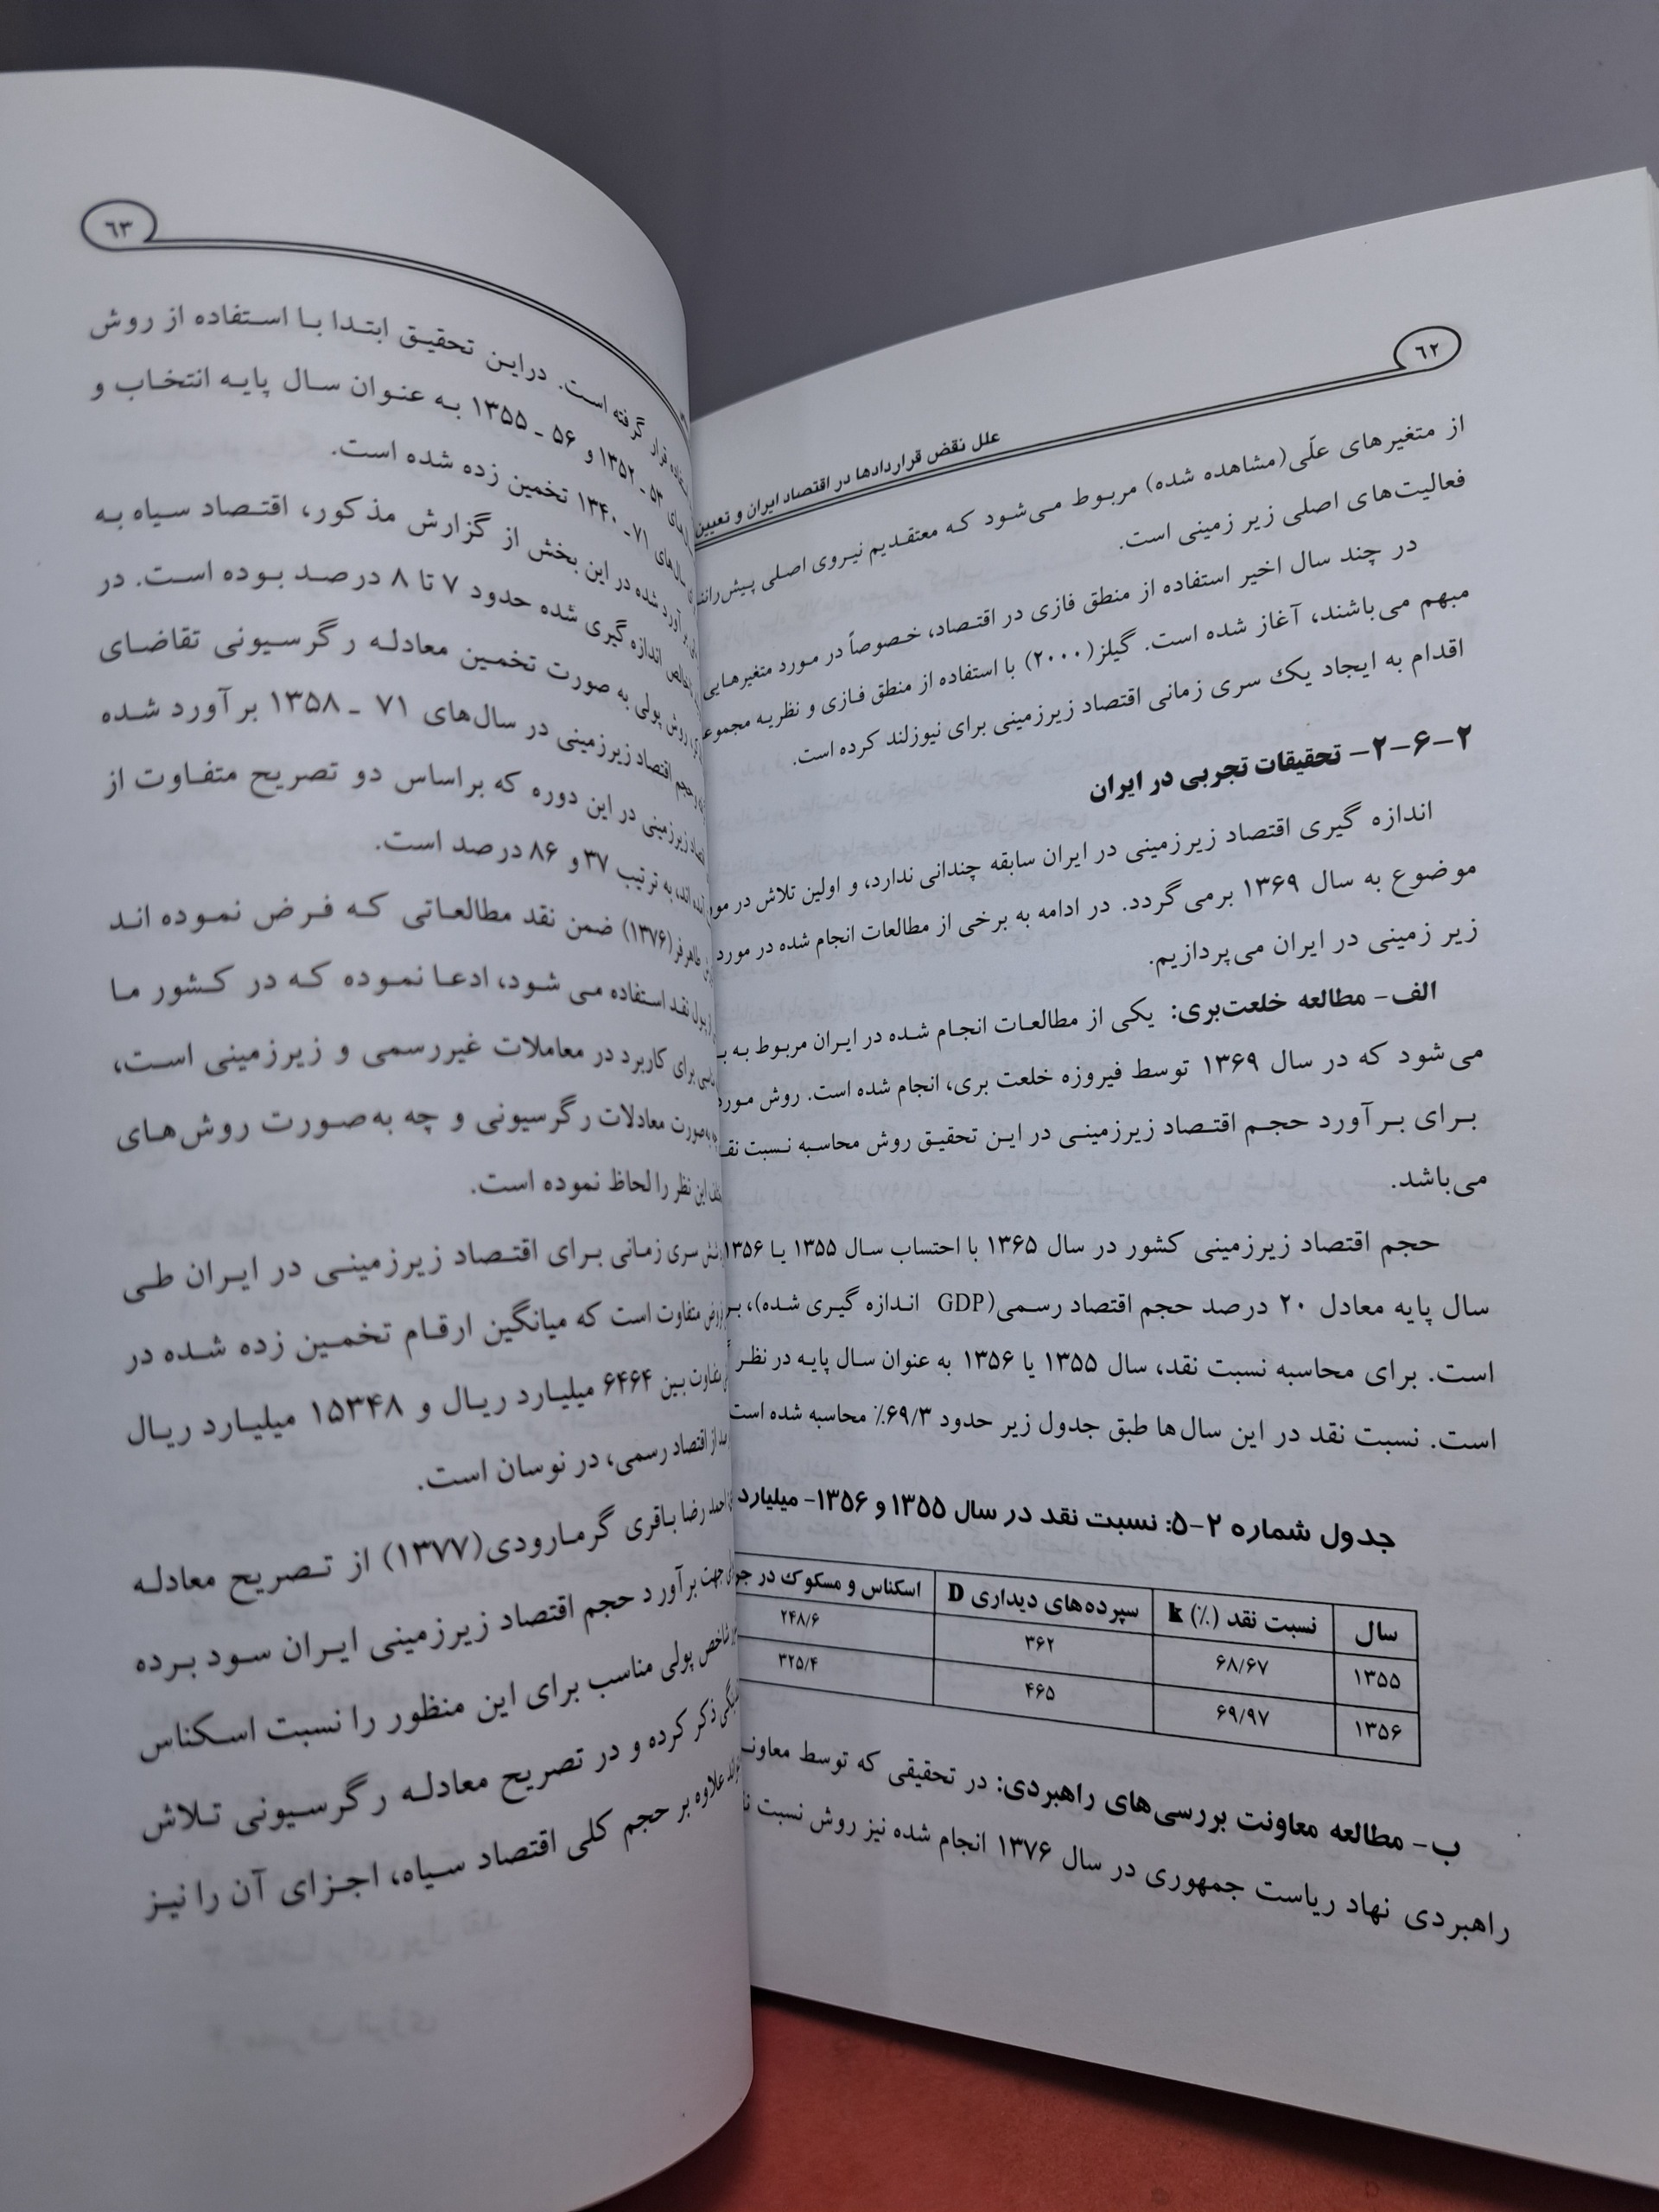 ۶۲
علل نقض قراردادها در اقتصاد ایران و تعیین
از متغیرهای علّی(مشاهده شده) مربوط می‌شود که معتقدیم نیروی اصلی پیش‌رانند
فعالیت‌های اصلی زیر زمینی است.
در چند سال اخیر استفاده از منطق فازی در اقتصاد، خصوصاً در مورد متغیرهایی
مبهم می‌باشند، آغاز شده است. گیلز(۲۰۰۰) با استفاده از منطق فازی و نظریه
اقدام به ایجاد یک سری زمانی اقتصاد زیرزمینی برای نیوزلند کرده است.
۲-۶-۲- تحقیقات تجربی در ایران
اندازه گیری اقتصاد زیرزمینی در ایران سابقه چندانی ندارد، و اولین تلاش در
موضوع به سال ۱۳۶۹ برمی‌گردد. در ادامه به برخی از مطالعات انجام شده در مورد
زیر زمینی در ایران می‌پردازیم.
الف- مطالعه خلعت‌بری: یکی از مطالعات انجام شده در ایران مربوط به
می‌شود که در سال ۱۳۶۹ توسط فیروزه خلعت بری، انجام شده است. روش مورد
برای برآورد حجم اقتصاد زیرزمینی در این تحقیق روش محاسبه نسبت
می‌باشد.
حجم اقتصاد زیرزمینی کشور در سال ۱۳۶۵ با احتساب سال ۱۳۵۵ یا ۱۳۵۶
سال پایه معادل ۲۰ درصد حجم اقتصاد رسمی(GDP اندازه گیری شده)،
است. برای محاسبه نسبت نقد، سال ۱۳۵۵ یا ۱۳۵۶ به عنوان سال پایه در نظر
است. نسبت نقد در این سال‌ها طبق جدول زیر حدود ۶۹/۳٪ محاسبه شده است
جدول شماره ۲-۵: نسبت نقد در سال ۱۳۵۵ و ۱۳۵۶- میلیارد
سال نسبت نقد (٪) k سپرده‌های دیداری D اسکناس و مسکوک در
۱۳۵۵ ۶۸/۶۷ ۳۶۲ ۲۴۸/۶
۱۳۵۶ ۶۹/۹۷ ۴۶۵ ۳۲۵/۴
ب- مطالعه معاونت بررسی‌های راهبردی: در تحقیقی که توسط
راهبردی نهاد ریاست جمهوری در سال ۱۳۷۶ انجام شده نیز روش نسبت
۶۳
قرار گرفته است. دراین تحقیق ابتدا با استفاده از روش
۵۳ - ۱۳۵۲ و ۵۶ - ۱۳۵۵ به عنوان سال پایه انتخاب و
سال‌های ۷۱- ۱۳۴۰ تخمین زده شده است.
برآورد شده در این بخش از گزارش مذکور، اقتصاد سیاه به
اندازه گیری شده حدود ۷ تا ۸ درصد بوده است. در
روش پولی به صورت تخمین معادله رگرسیونی تقاضای
حجم اقتصاد زیرزمینی در سال‌های ۷۱ - ۱۳۵۸ برآورد شده
زیرزمینی در این دوره که براساس دو تصریح متفاوت از
به ترتیب ۳۷ و ۸۶ درصد است.
طاهرفر(۱۳۷۶) ضمن نقد مطالعاتی که فرض نموده اند
پول نقد استفاده می شود، ادعا نموده که در کشور ما
برای کاربرد در معاملات غیررسمی و زیرزمینی است،
معادلات رگرسیونی و چه به‌صورت روش‌های
این نظر را لحاظ نموده است.
سری زمانی برای اقتصاد زیرزمینی در ایران طی
متفاوت است که میانگین ارقام تخمین زده شده در
بین ۶۴۶۴ میلیارد ریال و ۱۵۳۴۸ میلیارد ریال
از اقتصاد رسمی، در نوسان است.
احمد رضا باقری گرمارودی(۱۳۷۷) از تصریح معادله
جهت برآورد حجم اقتصاد زیرزمینی ایران سود برده
شاخص پولی مناسب برای این منظور را نسبت اسکناس
ذکر کرده و در تصریح معادله رگرسیونی تلاش
علاوه بر حجم کلی اقتصاد سیاه، اجزای آن را نیز